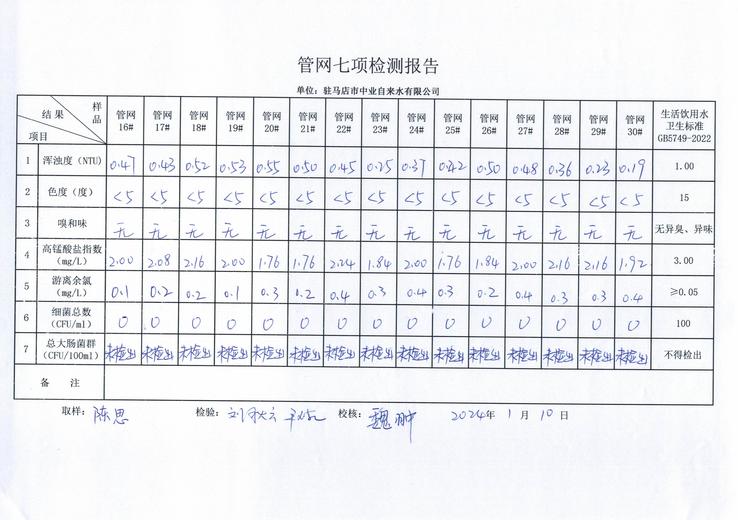 管网七项检测报告
单位：驻马店市中业自来水有限公司
结果 样品 项目 管网16# 管网17# 管网18# 管网19# 管网20# 管网21# 管网22# 管网23# 管网24# 管网25# 管网26# 管网27# 管网28# 管网29# 管网30# 生活饮用水卫生标准GB5749-2022
1 浑浊度（NTU） 0.47 0.43 0.52 0.53 0.55 0.50 0.45 0.25 0.37 0.42 0.50 0.48 0.36 0.23 0.19 1.00
2 色度（度） <5 <5 <5 <5 <5 <5 <5 <5 <5 <5 <5 <5 <5 <5 <5 15
3 嗅和味 无 无 无 无 无 无 无 无 无 无 无 无 无 无 无 无异臭、异味
4 高锰酸盐指数（mg/L） 2.00 2.08 2.16 2.00 1.76 1.76 2.24 1.84 2.00 1.76 1.84 2.00 2.16 2.16 1.92 3.00
5 游离余氯（mg/L） 0.1 0.2 0.2 0.1 0.3 0.2 0.4 0.3 0.4 0.3 0.2 0.4 0.3 0.3 0.4 ≥0.05
6 细菌总数（CFU/ml） 0 0 0 0 0 0 0 0 0 0 0 0 0 0 0 100
7 总大肠菌群（CFU/100ml） 未检出 未检出 未检出 未检出 未检出 未检出 未检出 未检出 未检出 未检出 未检出 未检出 未检出 未检出 未检出 不得检出
备注
取样：陈思 检验： 校核：魏翀 2024年1月10日